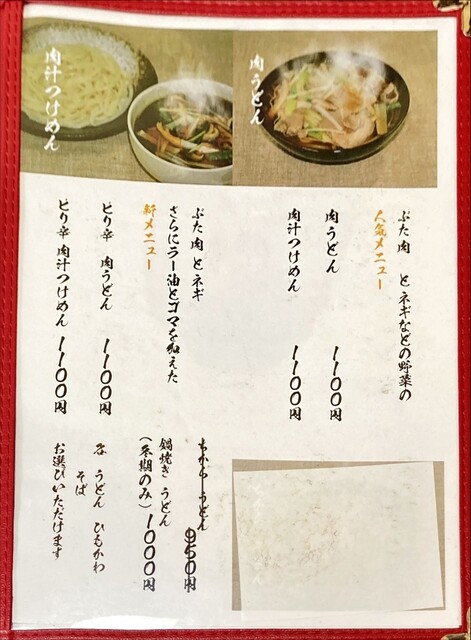 肉汁つけめん
肉うどん
ぶた肉 とネギなどの野菜の
人気メニュー
肉うどん 一一〇〇円
肉汁つけめん 一一〇〇円
ぶた肉とネギ
さらにラー油とゴマを加えた
新メニュー
ピリ辛 肉うどん 一一〇〇円
ピリ辛 肉汁つけめん 一一〇〇円
ちからうどん 九五〇円
鍋焼きうどん
(冬期のみ)一〇〇〇円
うどん ひもかわ
そば
お選びいただけます